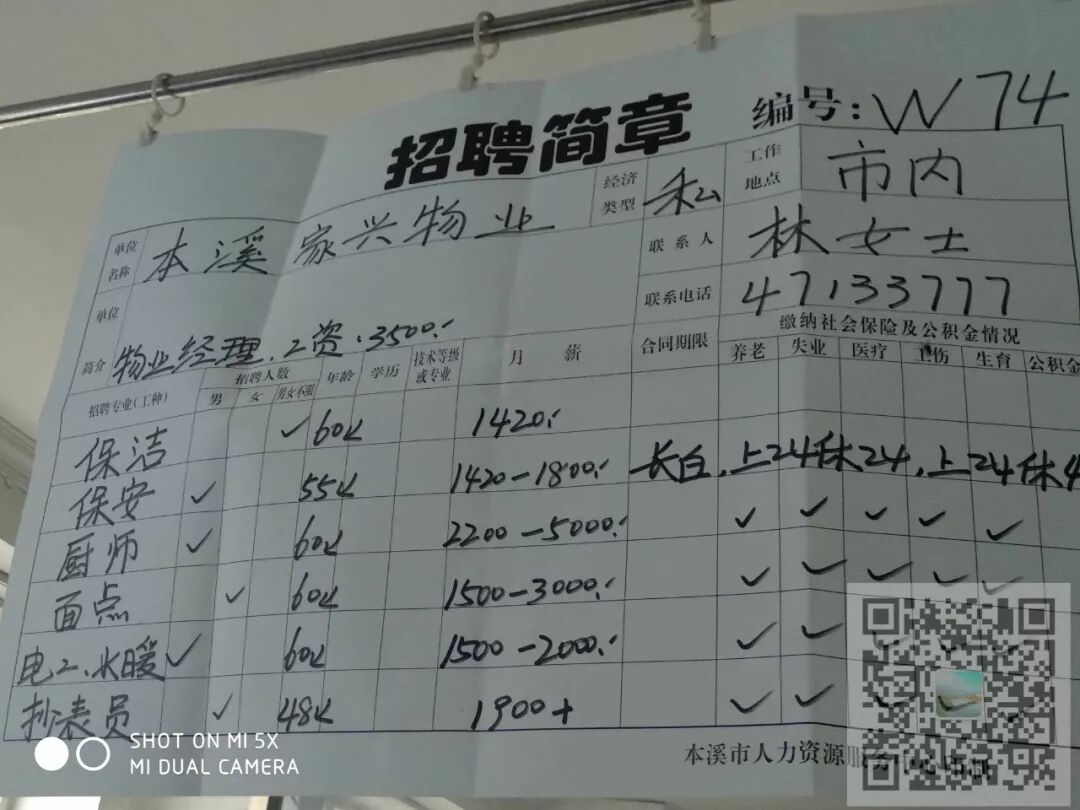 招聘简章
编号：W74
单位名称 本溪家兴物业 经济类型 私 工作地点 市内
联系人 林女士
单位简介 物业经理.工资:3500. 联系电话 47133777
招聘专业(工种) 招聘人数 年龄 学历 技术等级或专业 月薪 合同期限 缴纳社会保险及公积金情况
男 女 男女不限 养老 失业 医疗 工伤 生育 公积金
保洁 ✓ 60以 1420.
保安 ✓ 55以 1420-1800. 长白.上24休24,上24休4
厨师 ✓ 60以 2200-5000. ✓ ✓ ✓ ✓ ✓
面点 ✓ 60以 1500-3000. ✓ ✓ ✓ ✓ ✓
电工.水暖 ✓ 60以 1500-2000. ✓ ✓ ✓ ✓ ✓
抄表员 ✓ 48以 1900+ ✓ ✓ ✓
本溪市人力资源服务
SHOT ON MI 5X
MI DUAL CAMERA